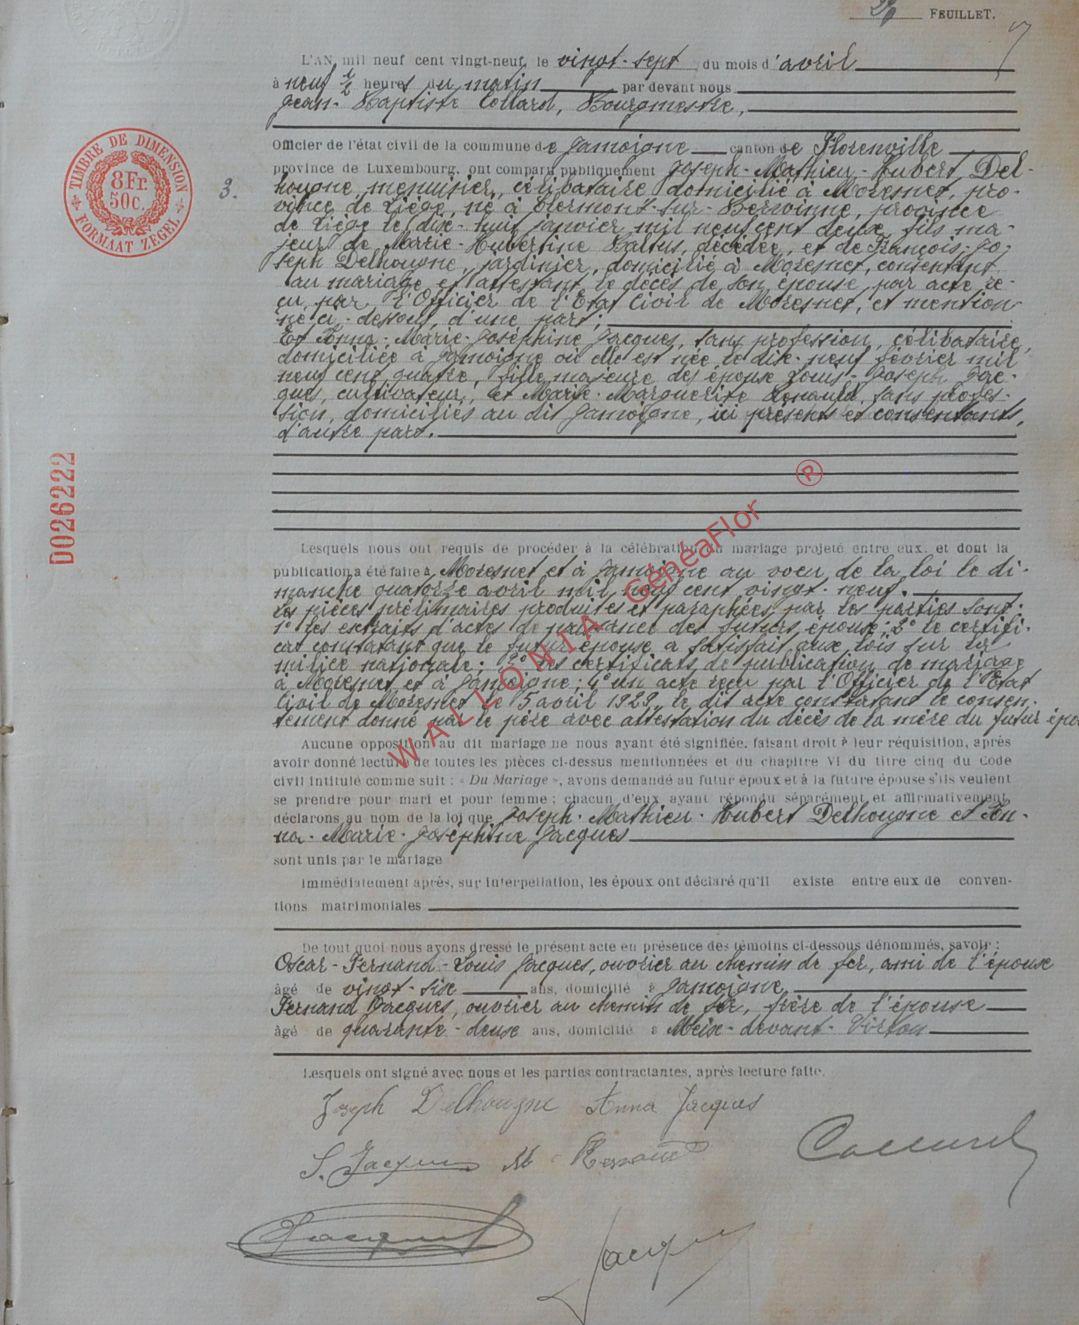 26 FEUILLET.
L'AN, mil neuf cent vingt-neuf, le vingt-sept du mois d'avril
à neuf ½ heures du matin par devant nous
Jean-Baptiste Collard, Bourgmestre,
Officier de l'état civil de la commune de Jamoigne canton de Florenville
province de Luxembourg, ont comparu publiquement Joseph-Mathieu-Hubert Del-
hougne, menuisier, célibataire, domicilié à Moresnet, pro-
vince de Liège, né à Clermont-sur-Berwinne, province
de Liège le dix-huit janvier mil neuf cent deux, fils ma-
jeur de Marie-Hubertine Baltus, décédée, et de François-Jo-
seph Delhougne, jardinier, domicilié à Moresnet, consentant
au mariage et attestant le décès de son épouse, par acte re-
çu par l'Officier de l'Etat Civil de Moresnet, et mention-
né ci-dessous, d'une part;
Et Anna-Marie-Joséphine Jacques, sans profession, célibataire,
domiciliée à Jamoigne où elle est née le dix-neuf février mil
neuf cent quatre, fille majeure des époux Louis-Joseph Jac-
ques, cultivateur, et Marie-Marguerite Renauld, sans profes-
sion, domiciliés au dit Jamoigne, ici présents et consentants,
d'autre part.
TIMBRE DE DIMENSION
8 Fr.
50c.
FORMAAT ZEGEL
3.
D026222
Lesquels nous ont requis de procéder à la célébration du mariage projeté entre eux, et dont la
publication a été faite à Moresnet et à Jamoigne au vœu de la loi le di-
manche quatorze avril mil neuf cent vingt-neuf.
Les pièces préliminaires produites et paraphées par les parties sont:
1° les extraits d'actes de naissance des futurs époux; 2° le certifi-
cat constatant que le futur époux a satisfait aux lois sur la
milice nationale; 3° les certificats de publication de mariage
à Moresnet et à Jamoigne; 4° un acte reçu par l'Officier de l'Etat
Civil de Moresnet le 5 avril 1929, le dit acte constatant le consen-
tement donné par le père avec attestation du décès de la mère du futur épou
WALLONIA GénéaFlor ®
Aucune opposition au dit mariage ne nous ayant été signifiée, faisant droit à leur réquisition, après
avoir donné lecture de toutes les pièces ci-dessus mentionnées et du chapitre VI du titre cinq du Code
civil intitulé comme suit : « Du Mariage », avons demandé au futur époux et à la future épouse s'ils veulent
se prendre pour mari et pour femme ; chacun d'eux ayant répondu séparément et affirmativement,
déclarons au nom de la loi que Joseph-Mathieu-Hubert Delhougne et An-
na-Marie-Joséphine Jacques
sont unis par le mariage
Immédiatement après, sur interpellation, les époux ont déclaré qu'il existe entre eux de conven-
tions matrimoniales
De tout quoi nous avons dressé le présent acte en présence des témoins ci-dessous dénommés, savoir :
Oscar-Fernand-Louis Jacques, ouvrier au chemin de fer, ami de l'épouse
âgé de vingt-six ans, domicilié à Jamoigne,
Fernand Jacques, ouvrier au chemin de fer, frère de l'épouse
âgé de quarante-deux ans, domicilié à Meix-devant-Virton
Lesquels ont signé avec nous et les parties contractantes, après lecture faite.
Joseph Delhougne Anna Jacques
Collard
Jacques
Jacques